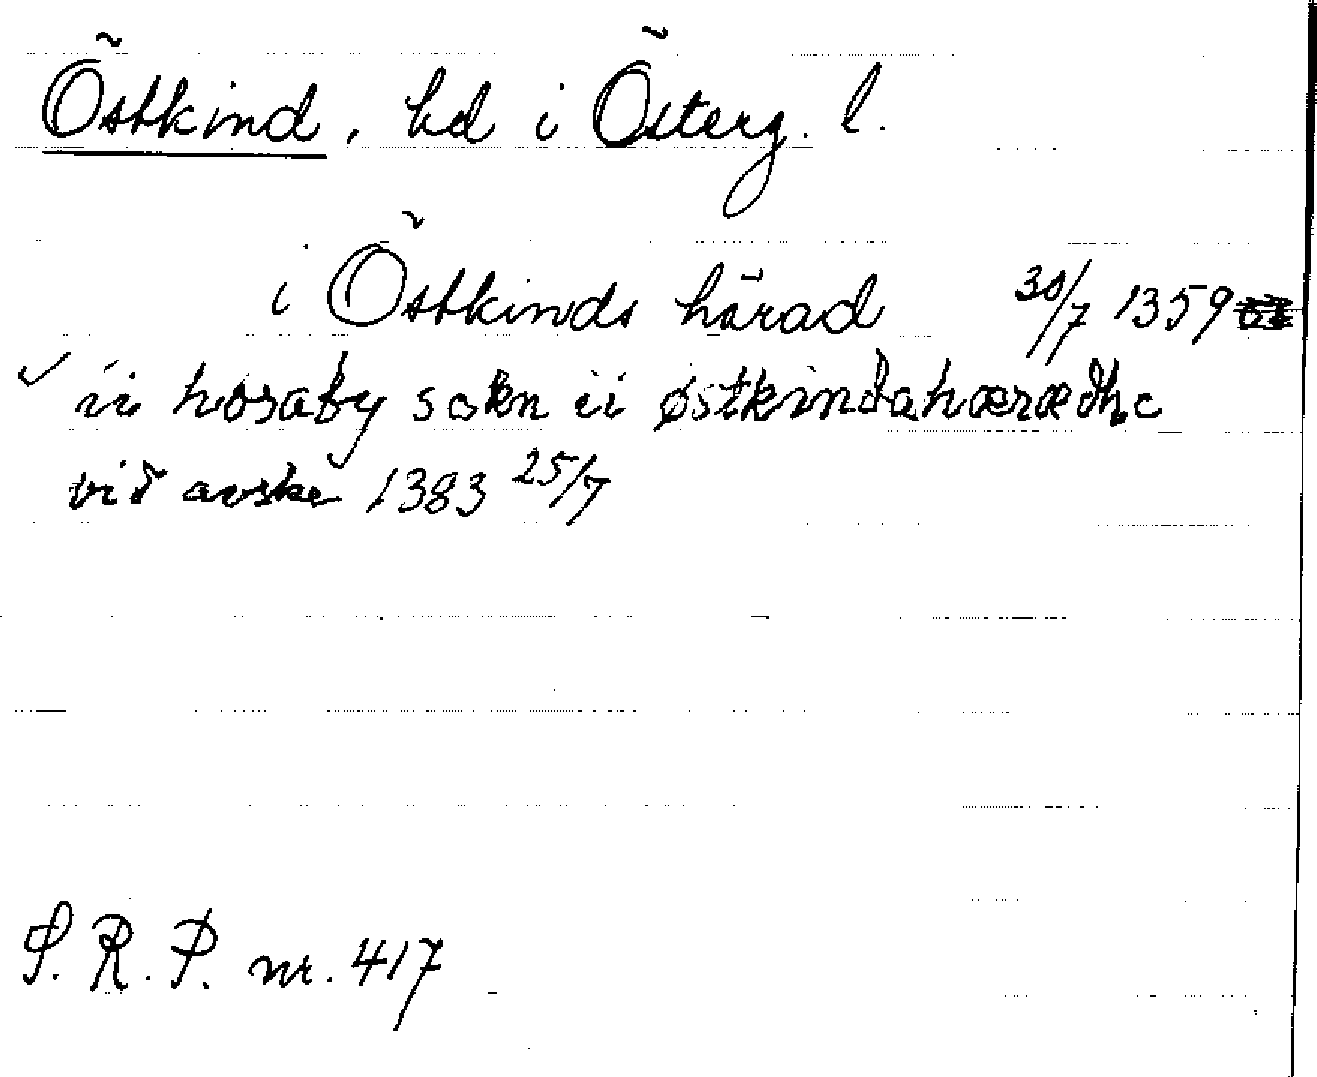 Östkind, hd i Österg. l.
i Östkinds härad 30/7 1359
ii hosaby sokn ii østkindahærædhe
við avskr 1383 25/7
S. R. P. nr. 417